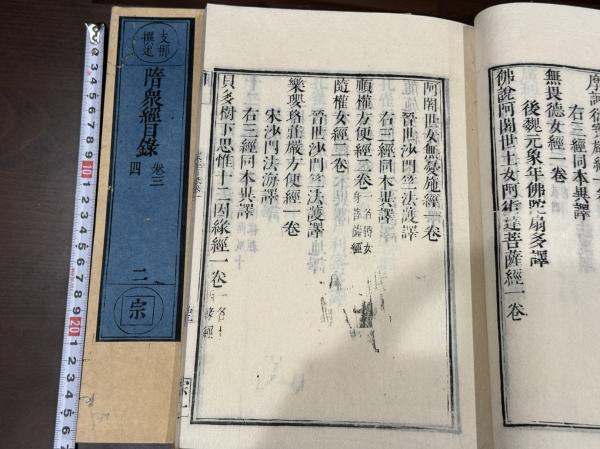 支那
撰述
隋衆經目錄
卷三
四
二
宗
摩訶衍寶嚴經一卷
右三經同本異譯
無畏德女經一卷
後魏元象年佛陀扇多譯
佛說阿闍世王女阿術達菩薩經一卷
阿闍世女無憂施經一卷
晉世沙門竺法護譯
右三經同本異譯
順權方便經二卷 一名轉女身菩薩經
隨權女經二卷
晉世沙門竺法護譯
樂瓔珞莊嚴方便經一卷
宋沙門法海譯
右三經同本異譯
貝多樹下思惟十二因緣經一卷
10
1
2
3
4
5
6
7
8
9
20
1
2
3
4